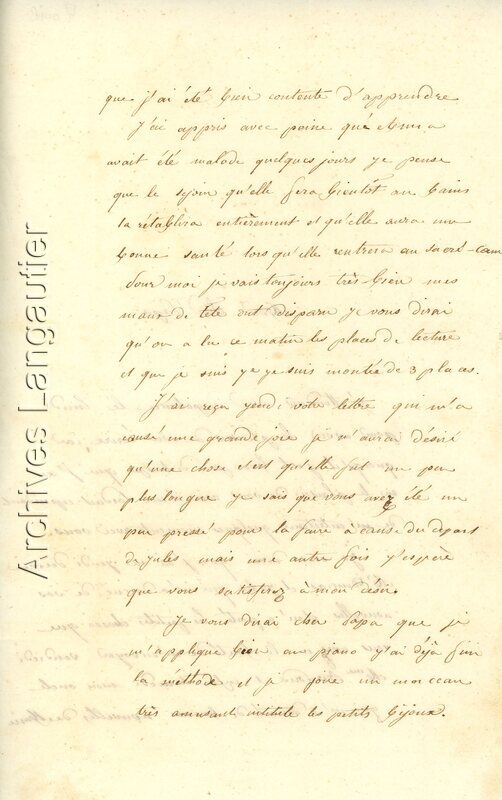 que j'ai été bien contente d'apprendre
J'ai appris avec peine que Anna
avait été malade quelques jours je pense
que le sejour qu'elle fera bientôt au bains
la rétablira entièrement et qu'elle aura une
bonne santé lorsqu'elle rentrera au sacré-cœur
Pour moi je vais toujours très bien mes
maux de tête ont disparu je vous dirai
qu'on a lu ce matin les places de lecture
et que je suis je je suis montée de 3 places.
J'ai reçu jeudi votre lettre qui m'a
causé une grande joie je n'aurai désiré
qu'une chose c'est qu'elle fut un peu
plus longue je sais que vous avez été un
peu pressé pour la faire à cause du départ
de Jules mais une autre fois j'espère
que vous satisferez à mon désir.
Je vous dirai cher Papa que je
m'applique bien au piano j'ai déjà fini
la méthode et je joue un morceau
très amusant intitulé les petits bijoux.
Archives Langautier